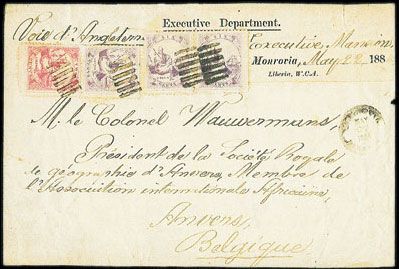 Voie d'Angleterre
Executive Department.
Executive Mansion,
Monrovia, May 22 188
Liberia, W.C.A.
M. le Colonel Wauwermans,
Président de la Société Royale
de géographie d'Anvers, Membre de
l'Association internationale Africaine,
Anvers,
Belgique